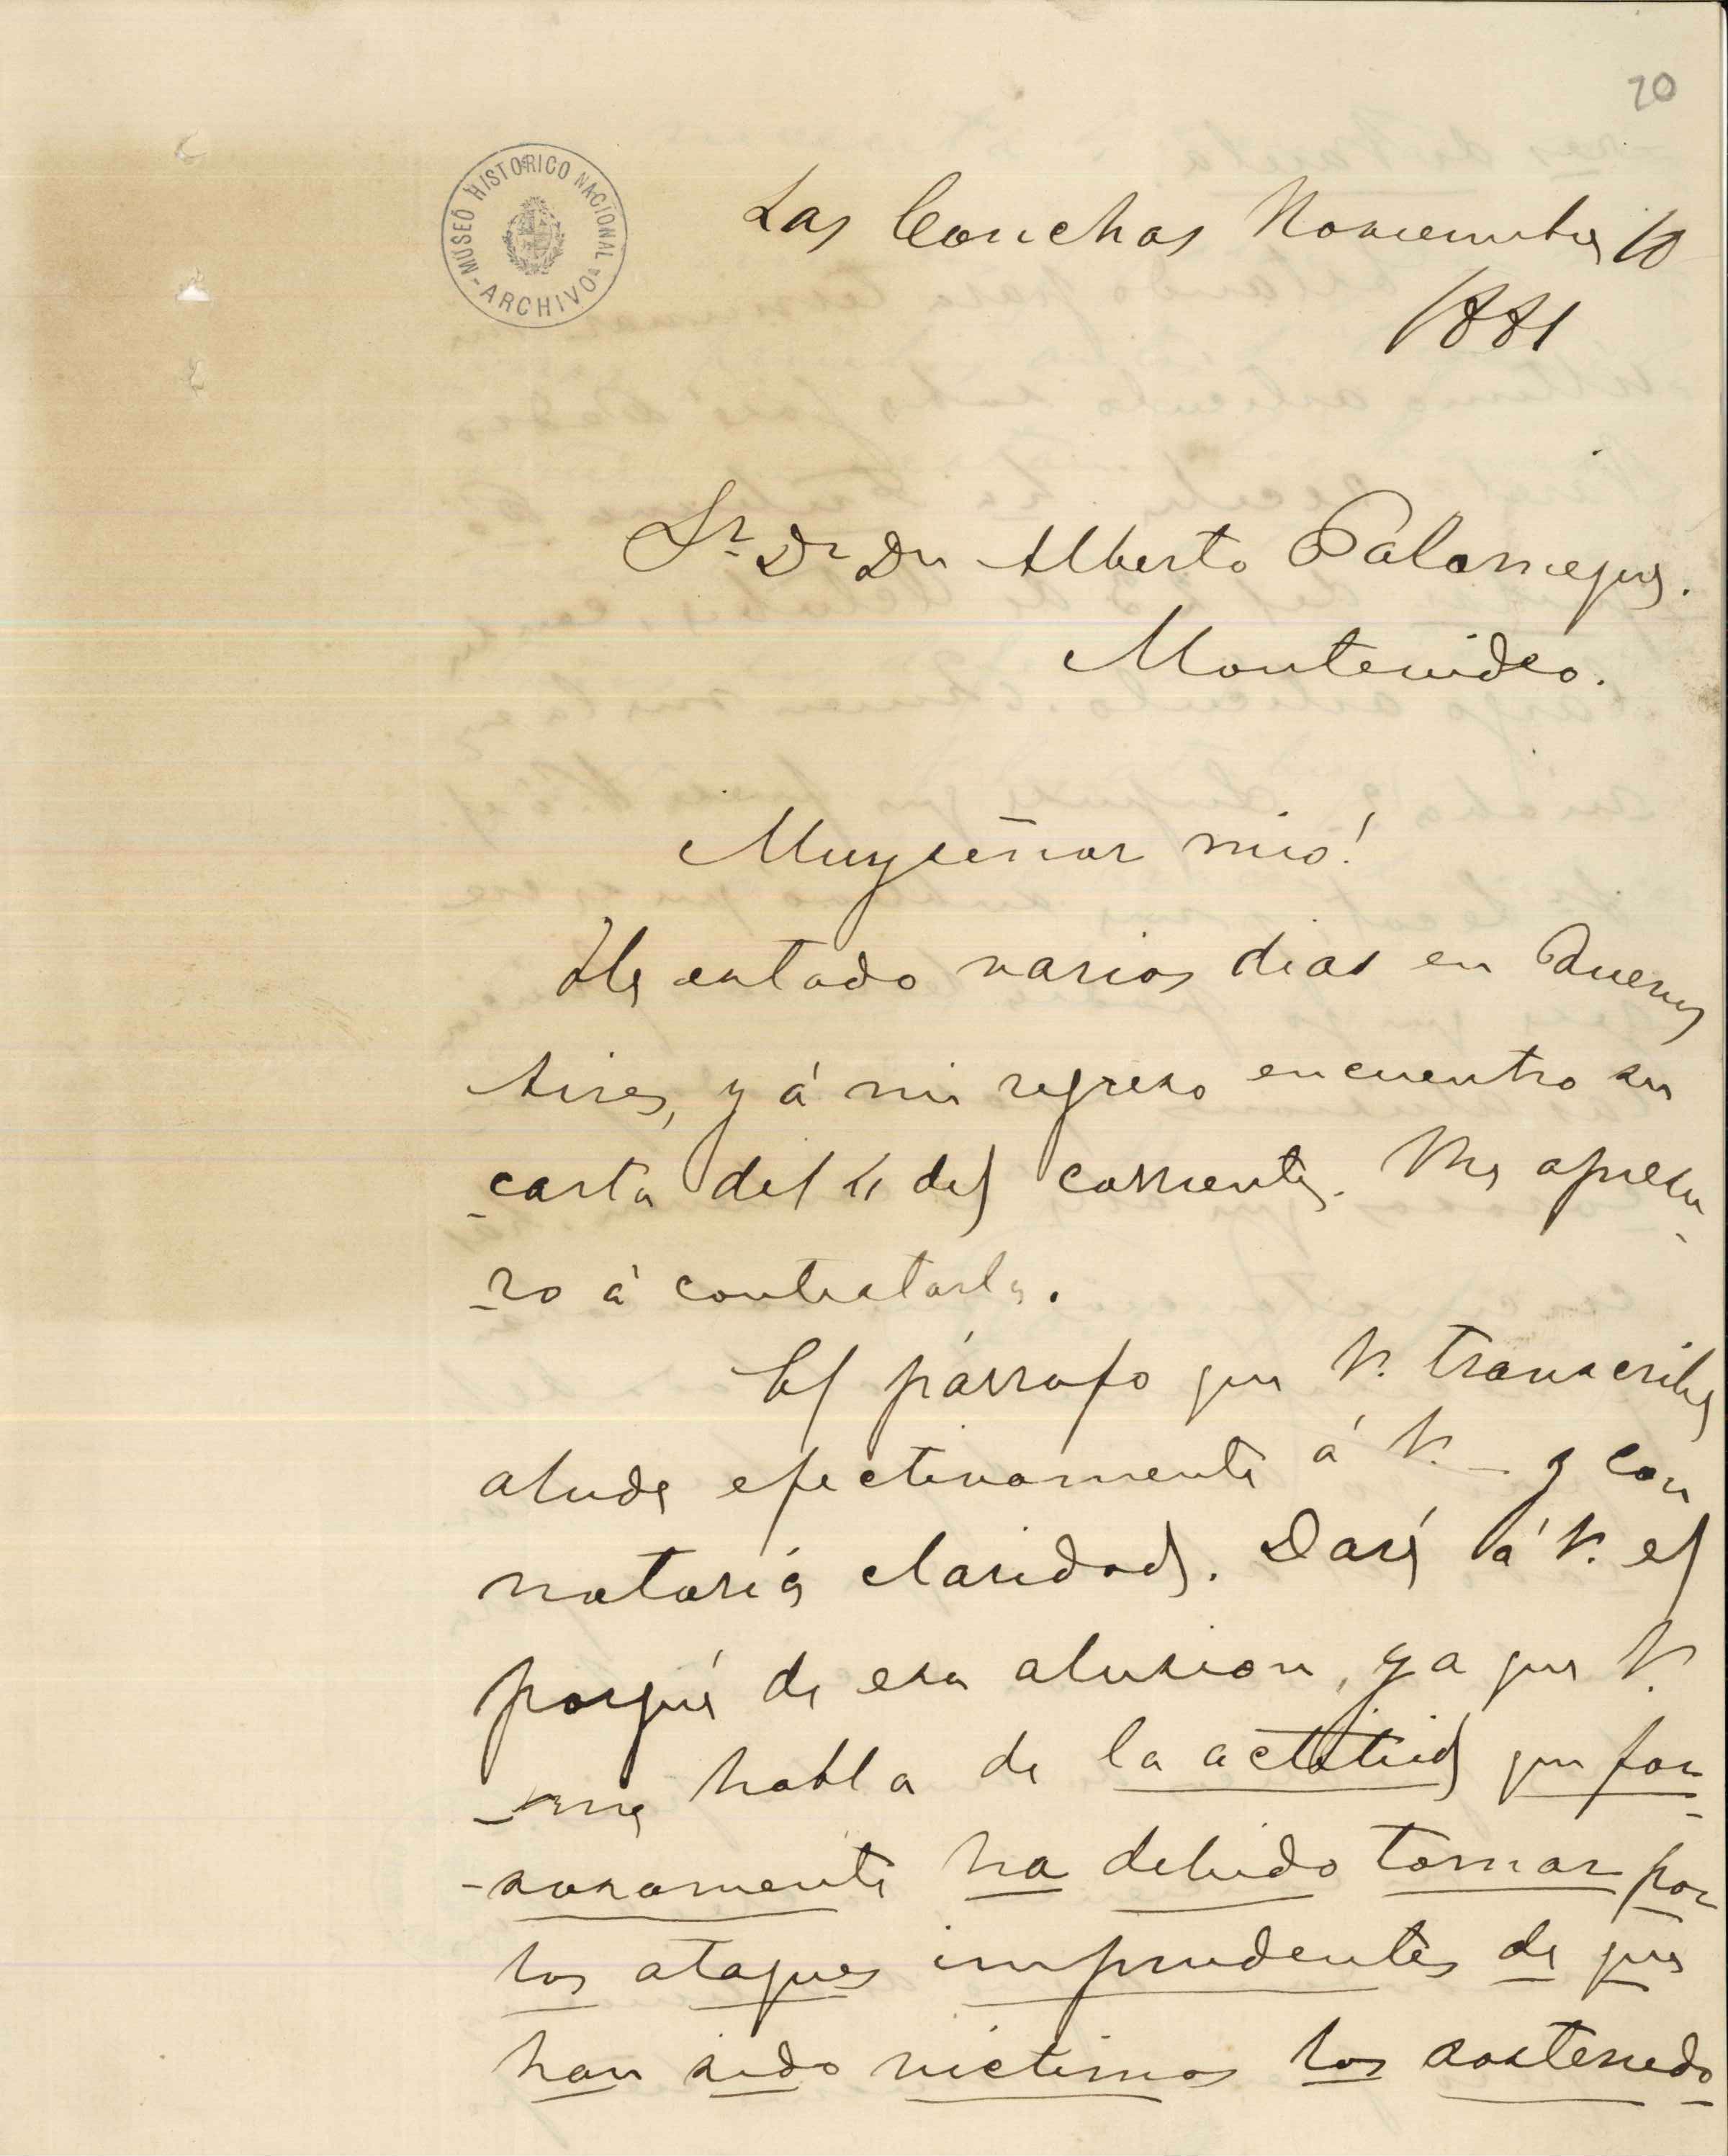 20
MUSEO HISTORICO NACIONAL
-ARCHIVO-
Las Conchas Noviembre 10
1881
Sr Dr Dn Alberto Palomeque.
Montevideo.
Muy señor mio!
He estado varios dias en Buenos
Aires, y á mi regreso encuentro su
carta del 4 del corriente. Me apresu-
-ro á contestarla.
El párrafo que V. transcribe
alude efectivamente á V. – y con
notoria claridad. Daré á V. el
porqué de esa alusion, ya que V.
me habla de la actitud que for-
-zosamente ha debido tomar por
los ataques imprudentes de que
han sido víctimas los sostenedo-